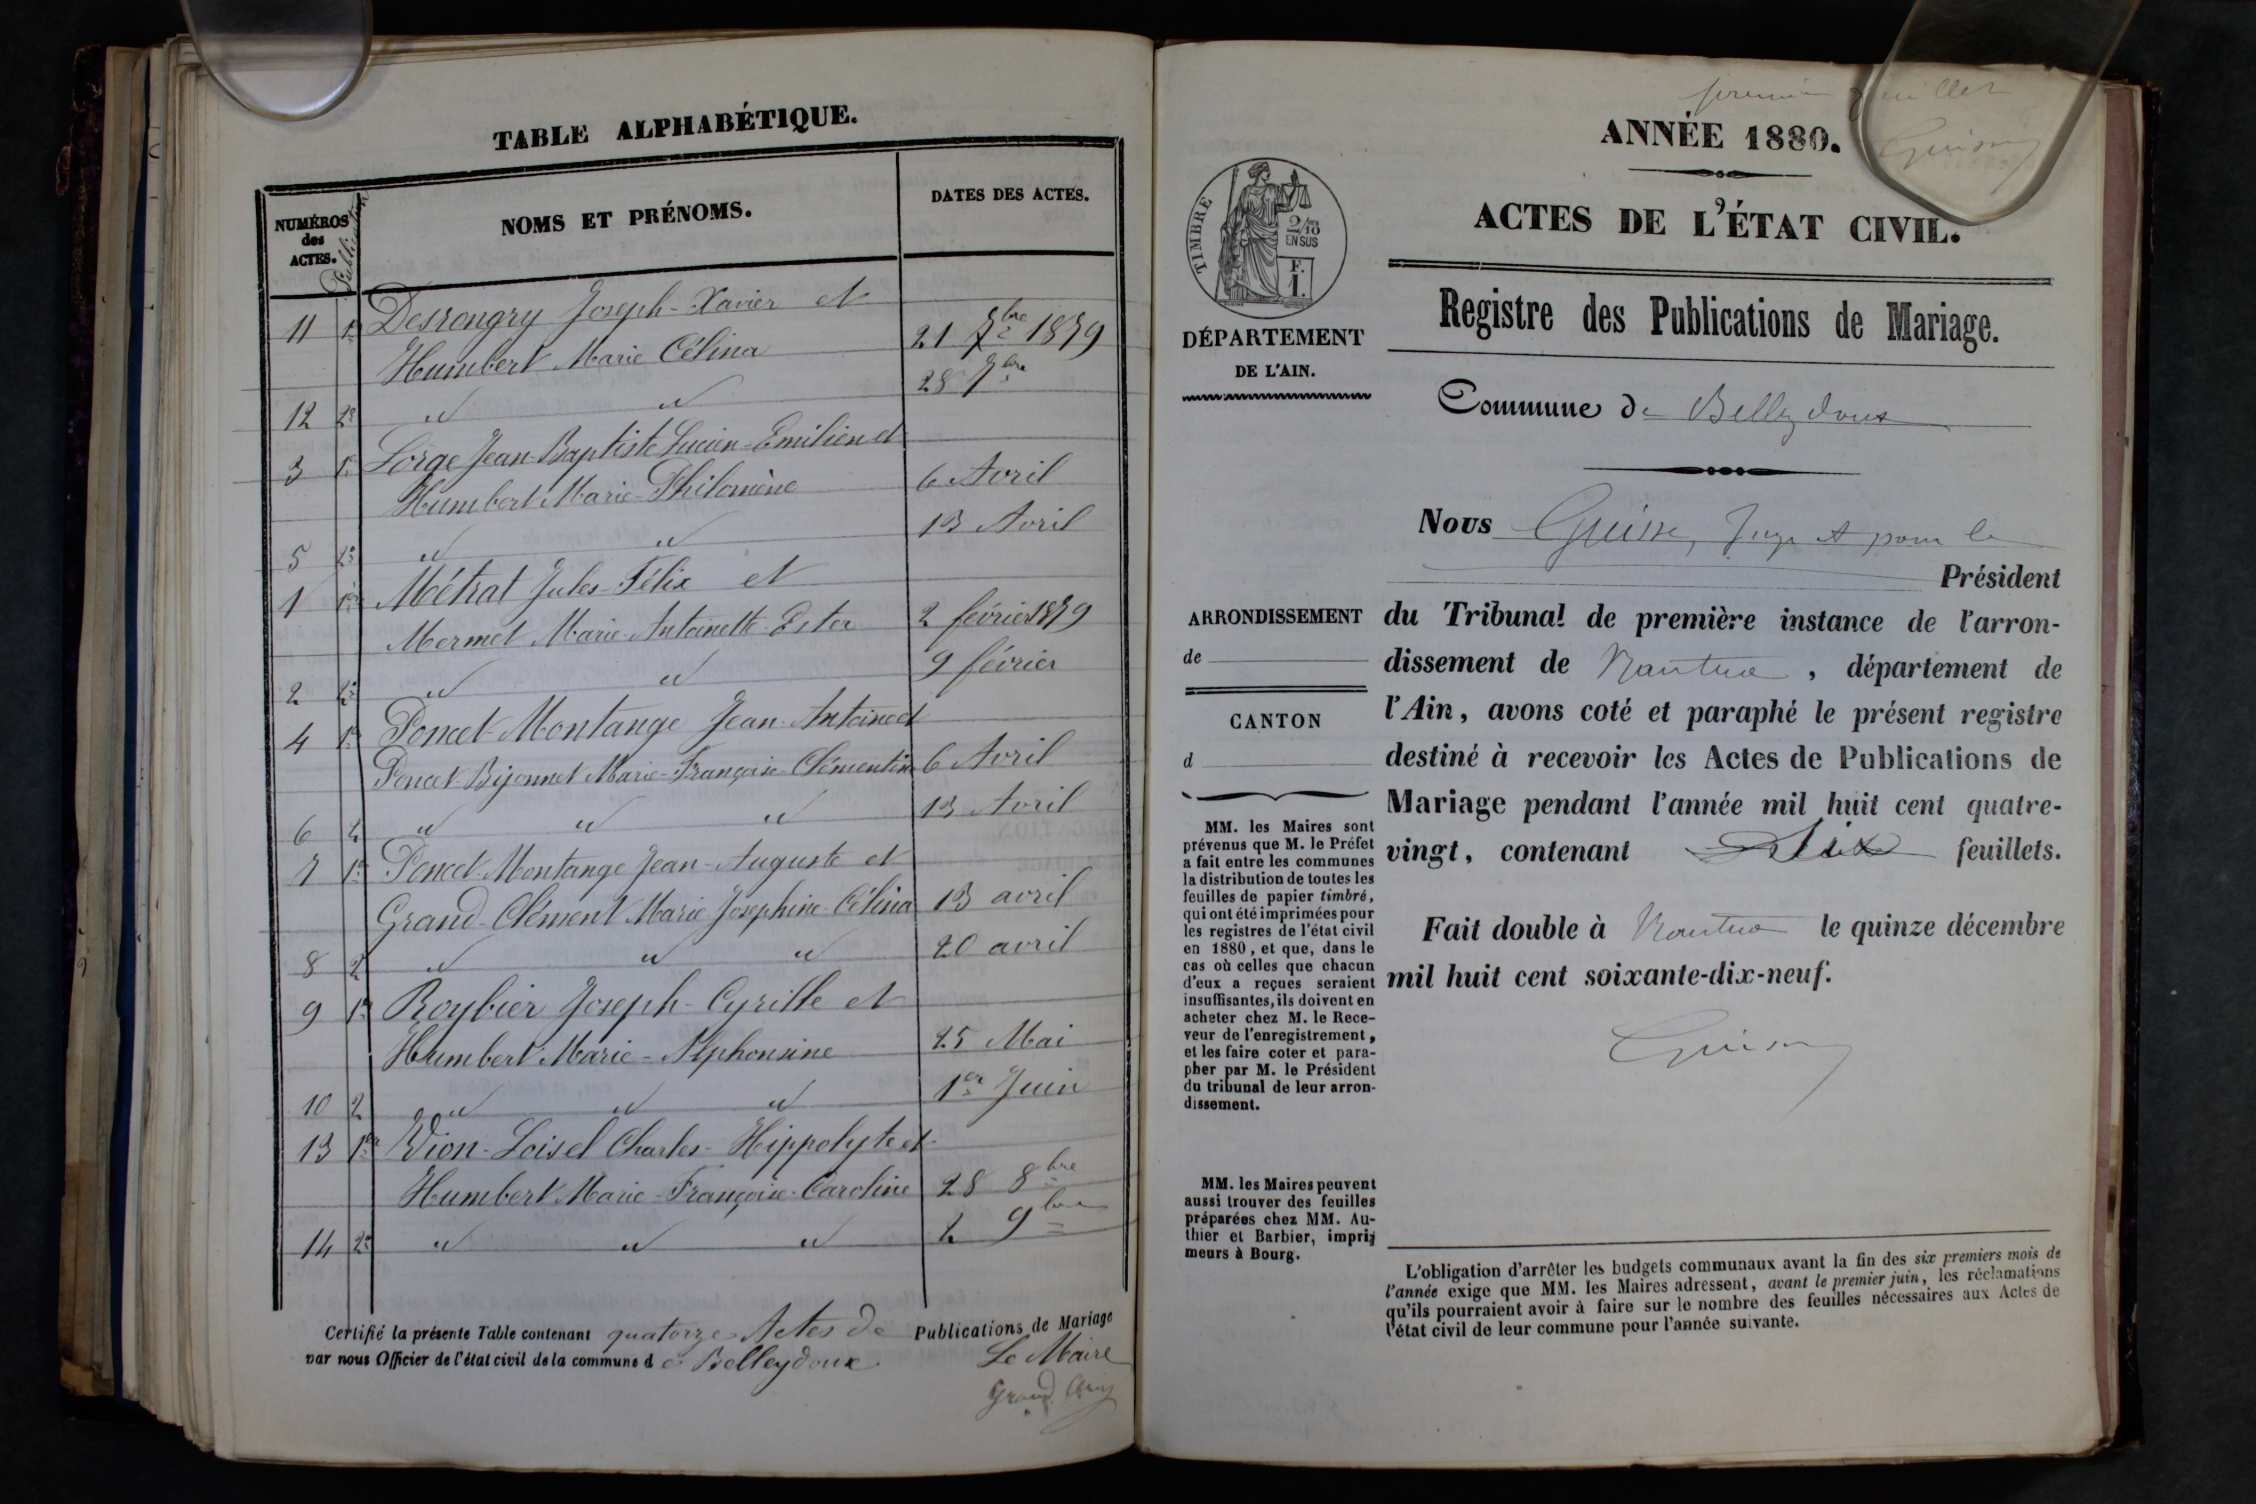 TABLE ALPHABÉTIQUE.
NUMÉROS
des
ACTES.
Publication
NOMS ET PRÉNOMS.
DATES DES ACTES.
11 1re Desrongry Joseph-Xavier et
Humbert Marie Célina 21 7bre 1879
12 2e " " 28 7bre
3 1re Lorge Jean-Baptiste Lucien-Emilien et
Humbert Marie-Philomène 6 Avril
5 2e " " 13 Avril
1 1re Métrat Jules-Félix et
Mermet Marie-Antoinette-Ester 2 février 1879
2 2e " " 9 février
4 1re Poncet-Montange Jean-Antoine et
Poncet-Bijonnet Marie-Françoise-Clémentine 6 Avril
6 2 " " " 13 Avril
7 1re Poncet-Montange Jean-Auguste et
Grand-Clément Marie Josephine-Célina 13 avril
8 2 " " " 20 avril
9 1re Roybier Joseph-Cyrille et
Humbert Marie-Alphonsine 25 Mai
10 2 " " " 1er Juin
13 1re Vion-Loisel Charles-Hippolyte et
Humbert Marie-Françoise-Caroline 28 8bre
14 2e " " " 2 9bre
Certifié la présente Table contenant quatorze Actes de Publications de Mariage
par nous Officier de l'état civil de la commune d e Belleydoux.
Le Maire
Grand
premier feuillet
ANNÉE 1880.
ACTES DE L'ÉTAT CIVIL.
TIMBRE
2/10
EN SUS
F.
1.
DÉPARTEMENT
DE L'AIN.
Registre des Publications de Mariage.
Commune de Belleydoux
Nous Guisse, Juge et pour le
Président
du Tribunal de première instance de l'arron-
dissement de Nantua, département de
l'Ain, avons coté et paraphé le présent registre
destiné à recevoir les Actes de Publications de
Mariage pendant l'année mil huit cent quatre-
vingt, contenant Six feuillets.
Fait double à Nantua le quinze décembre
mil huit cent soixante-dix-neuf.
ARRONDISSEMENT
de
CANTON
d
MM. les Maires sont
prévenus que M. le Préfet
a fait entre les communes
la distribution de toutes les
feuilles de papier timbré,
qui ont été imprimées pour
les registres de l'état civil
en 1880, et que, dans le
cas où celles que chacun
d'eux a reçues seraient
insuffisantes, ils doivent en
acheter chez M. le Rece-
veur de l'enregistrement,
et les faire coter et para-
pher par M. le Président
du tribunal de leur arron-
dissement.
MM. les Maires peuvent
aussi trouver des feuilles
préparées chez MM. Au-
thier et Barbier, impri-
meurs à Bourg.
L'obligation d'arrêter les budgets communaux avant la fin des six premiers mois de
l'année exige que MM. les Maires adressent, avant le premier juin, les réclamations
qu'ils pourraient avoir à faire sur le nombre des feuilles nécessaires aux Actes de
l'état civil de leur commune pour l'année suivante.